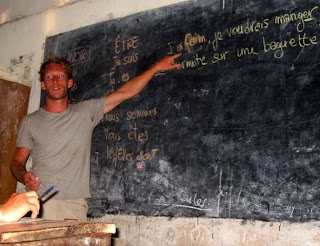 ÊTRE
Je suis
Tu es
nous sommes
Vous êtes
Ils/Elles sont
J'ai faim, je voudrais manger
sur une baguette